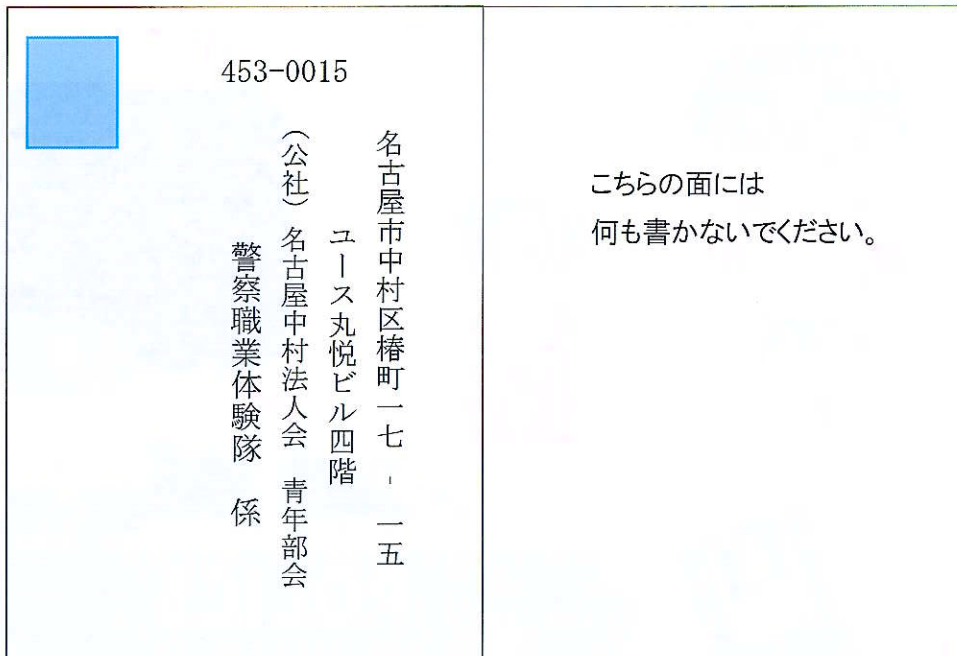 453-0015
名古屋市中村区椿町一七 - 一五
ユース丸悦ビル四階
(公社) 名古屋中村法人会 青年部会
警察職業体験隊 係
こちらの面には
何も書かないでください。